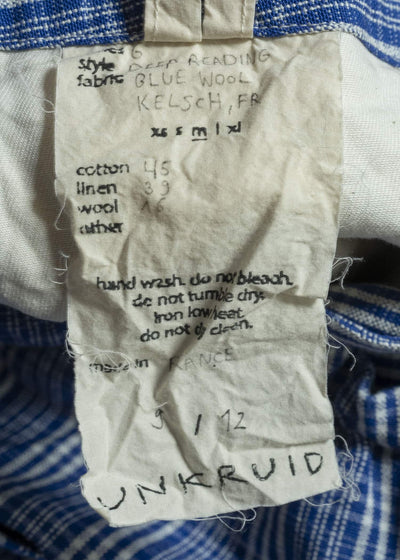 6
style DEEP READING
fabric BLUE WOOL
KELSCH, FR
xs s m l xl
cotton 45
linen 39
wool 16
other
hand wash. do not bleach.
do not tumble dry.
iron low heat.
do not dry clean.
made in FRANCE
9 / 12
UNKRUID